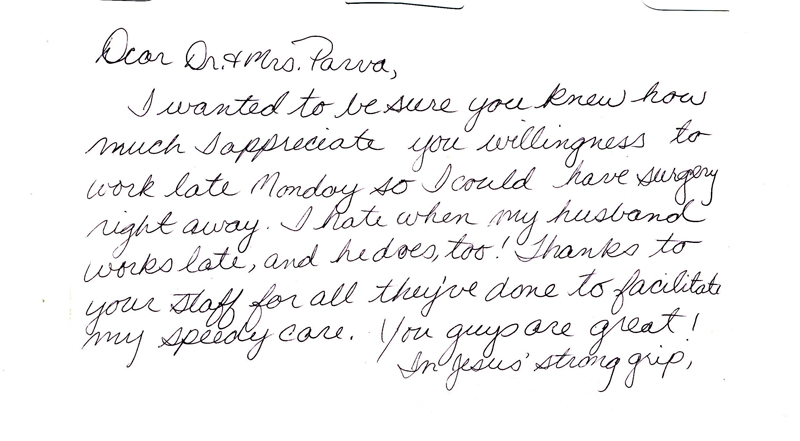 Dear Dr. & Mrs. Parva,
I wanted to be sure you knew how
much I appreciate you willingness to
work late Monday so I could have surgery
right away. I hate when my husband
works late, and he does, too! Thanks to
your staff for all they've done to facilitate
my speedy care. You guys are great!
In Jesus' strong grip,